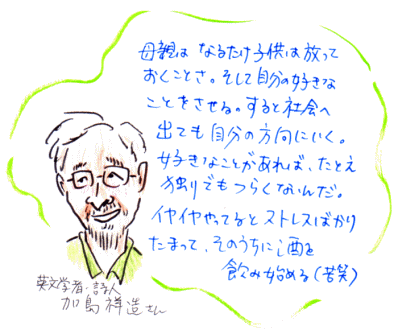 母親は なるたけ子供は放って
おくことさ。そして自分の好きな
ことをさせる。すると社会へ
出ても自分の方向にいく。
好きなことがあれば、たとえ
独りでもつらくないんだ。
イヤイヤやってるとストレスばかり
たまって、そのうちに酒を
飲み始める(苦笑)
英文学者・詩人
加島祥造さん